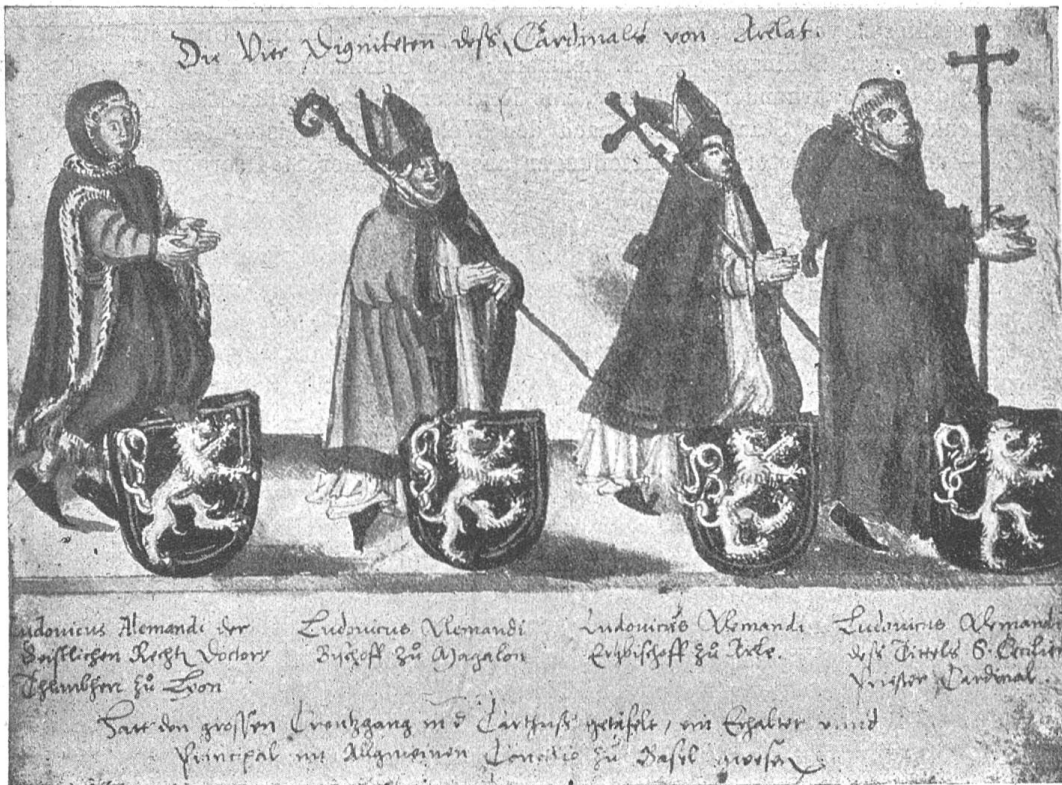 Die Vier Digniteten deß Cardinals von Arelat.
Ludouicus Alemandi der
Geistlichen Recht Doctor
Thumbherr zů Lyon
Ludouicus Alemandi
Bischoff zů Magalon
Ludouicus Alemandi
Ertzbischoff zů Arle.
Ludouicus Alemandi
deß Tittels S. Cecilien
Priester Cardinal.
Hatt den grossen Creutzgang in d Carthuß getäfelt, ein Erhalter vnnd
Principal im Allgemeinen Concilio zů Basel gwesen